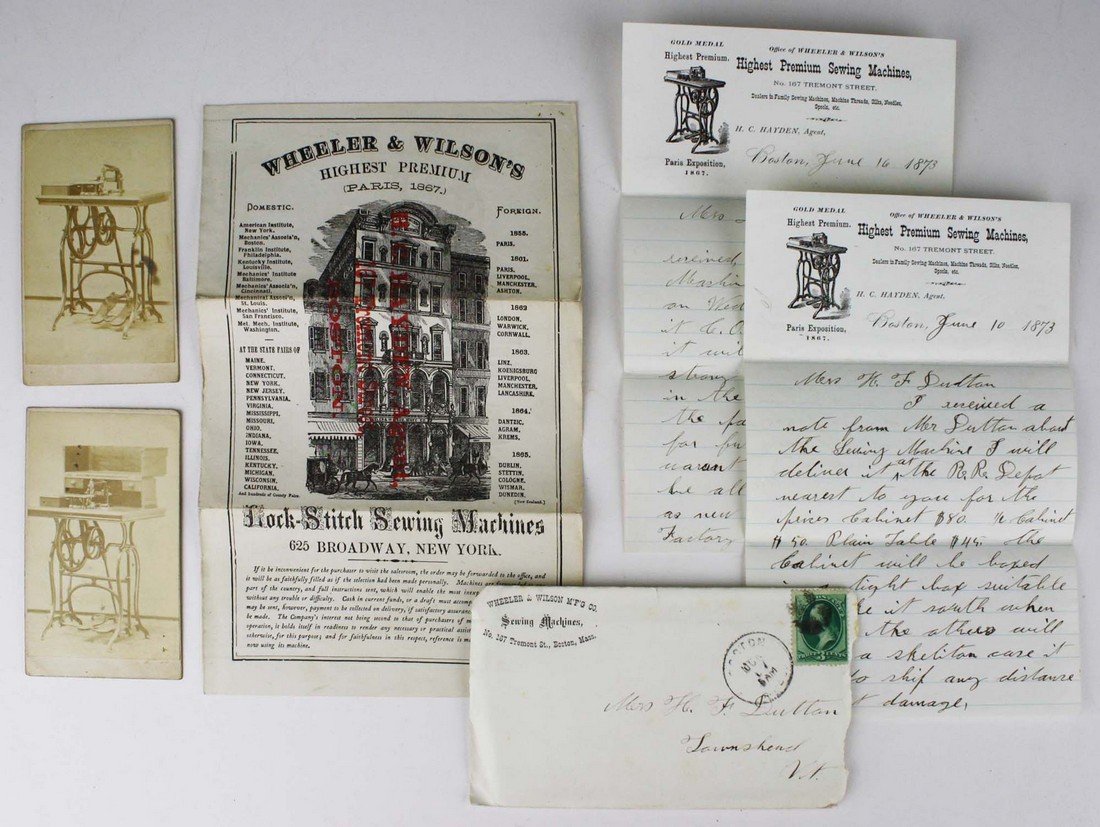 WHEELER & WILSON'S
HIGHEST PREMIUM
(PARIS, 1867.)
DOMESTIC.
American Institute,
New York.
Mechanics' Associa'n,
Boston.
Franklin Institute,
Philadelphia.
Kentucky Institute,
Louisville.
Mechanics' Institute
Baltimore.
Mechanics' Associa'n,
Cincinnati.
Mechanical Associ'n,
St. Louis.
Mechanics' Institute,
San Francisco.
Met. Mech. Institute,
Washington.
AT THE STATE FAIRS OF
MAINE,
VERMONT,
CONNECTICUT,
NEW YORK,
NEW JERSEY,
PENNSYLVANIA,
VIRGINIA,
MISSISSIPPI,
MISSOURI,
OHIO,
INDIANA,
IOWA,
TENNESSEE,
ILLINOIS,
KENTUCKY,
MICHIGAN,
WISCONSIN,
CALIFORNIA.
And hundreds of County Fairs.
FOREIGN.
1855.
PARIS.
1861.
PARIS,
LIVERPOOL,
MANCHESTER,
ASHTON.
1862
LONDON,
WARWICK,
CORNWALL.
1863.
LINZ,
KOENIGSBURG
LIVERPOOL,
MANCHESTER,
LANCASHIRE.
1864.
DANTZIC,
AGRAM,
KREMS.
1865.
DUBLIN,
STETTIN,
COLOGNE,
WISMAR,
DUNEDIN.
[New Zealand.]
H. C. HAYDEN, Agent,
BOSTON.
Lock-Stitch Sewing Machines
625 BROADWAY, NEW YORK.
If it be inconvenient for the purchaser to visit the salesroom, the order may be forwarded to the office, and
it will be as faithfully filled as if the selection had been made personally. Machines are
part of the country, and full instructions sent, which will enable the most
without any trouble or difficulty. Cash in current funds, or a draft must
may be sent, however, payment to be collected on delivery, if satisfactory
be made. The Company's interest not being second to that of purchasers of
operation, it holds itself in readiness to render any necessary or practical
otherwise, for this purpose; and for faithfulness in this respect, reference is
now using its machine.
GOLD MEDAL
Highest Premium.
Paris Exposition,
1867.
Office of WHEELER & WILSON'S
Highest Premium Sewing Machines,
No. 167 TREMONT STREET.
Dealers in Family Sewing Machines, Machine Threads, Silks, Needles,
Spools, etc.
H. C. HAYDEN, Agent.
Boston, June 16 1873
Mrs
received
Machine
on Wed
it C. O
it wil
strong
in the
the
for
warant
be all
as new
Factory
GOLD MEDAL
Highest Premium.
Paris Exposition,
1867.
Office of WHEELER & WILSON'S
Highest Premium Sewing Machines,
No. 167 TREMONT STREET.
Dealers in Family Sewing Machines, Machine Threads, Silks, Needles,
Spools, etc.
H. C. HAYDEN, Agent.
Boston, June 10 1873
Mrs H. F. Dutton
I received a
note from Mr Dutton about
the Sewing Machine I will
deliver it at the R. Ro Depo
nearest to you for the
prices Cabinet $80. ½ Cabinet
$50. Plain Table $45. the
Cabinet will be boxed
tight box suitable
it south when
the others will
a skeliton case it
to ship any distance
damage,
WHEELER & WILSON M'F'G CO.
Sewing Machines,
No. 167 Tremont St., Boston, Mass.
BOSTON
MASS.
Mrs H. F. Dutton
Townshend
Vt.